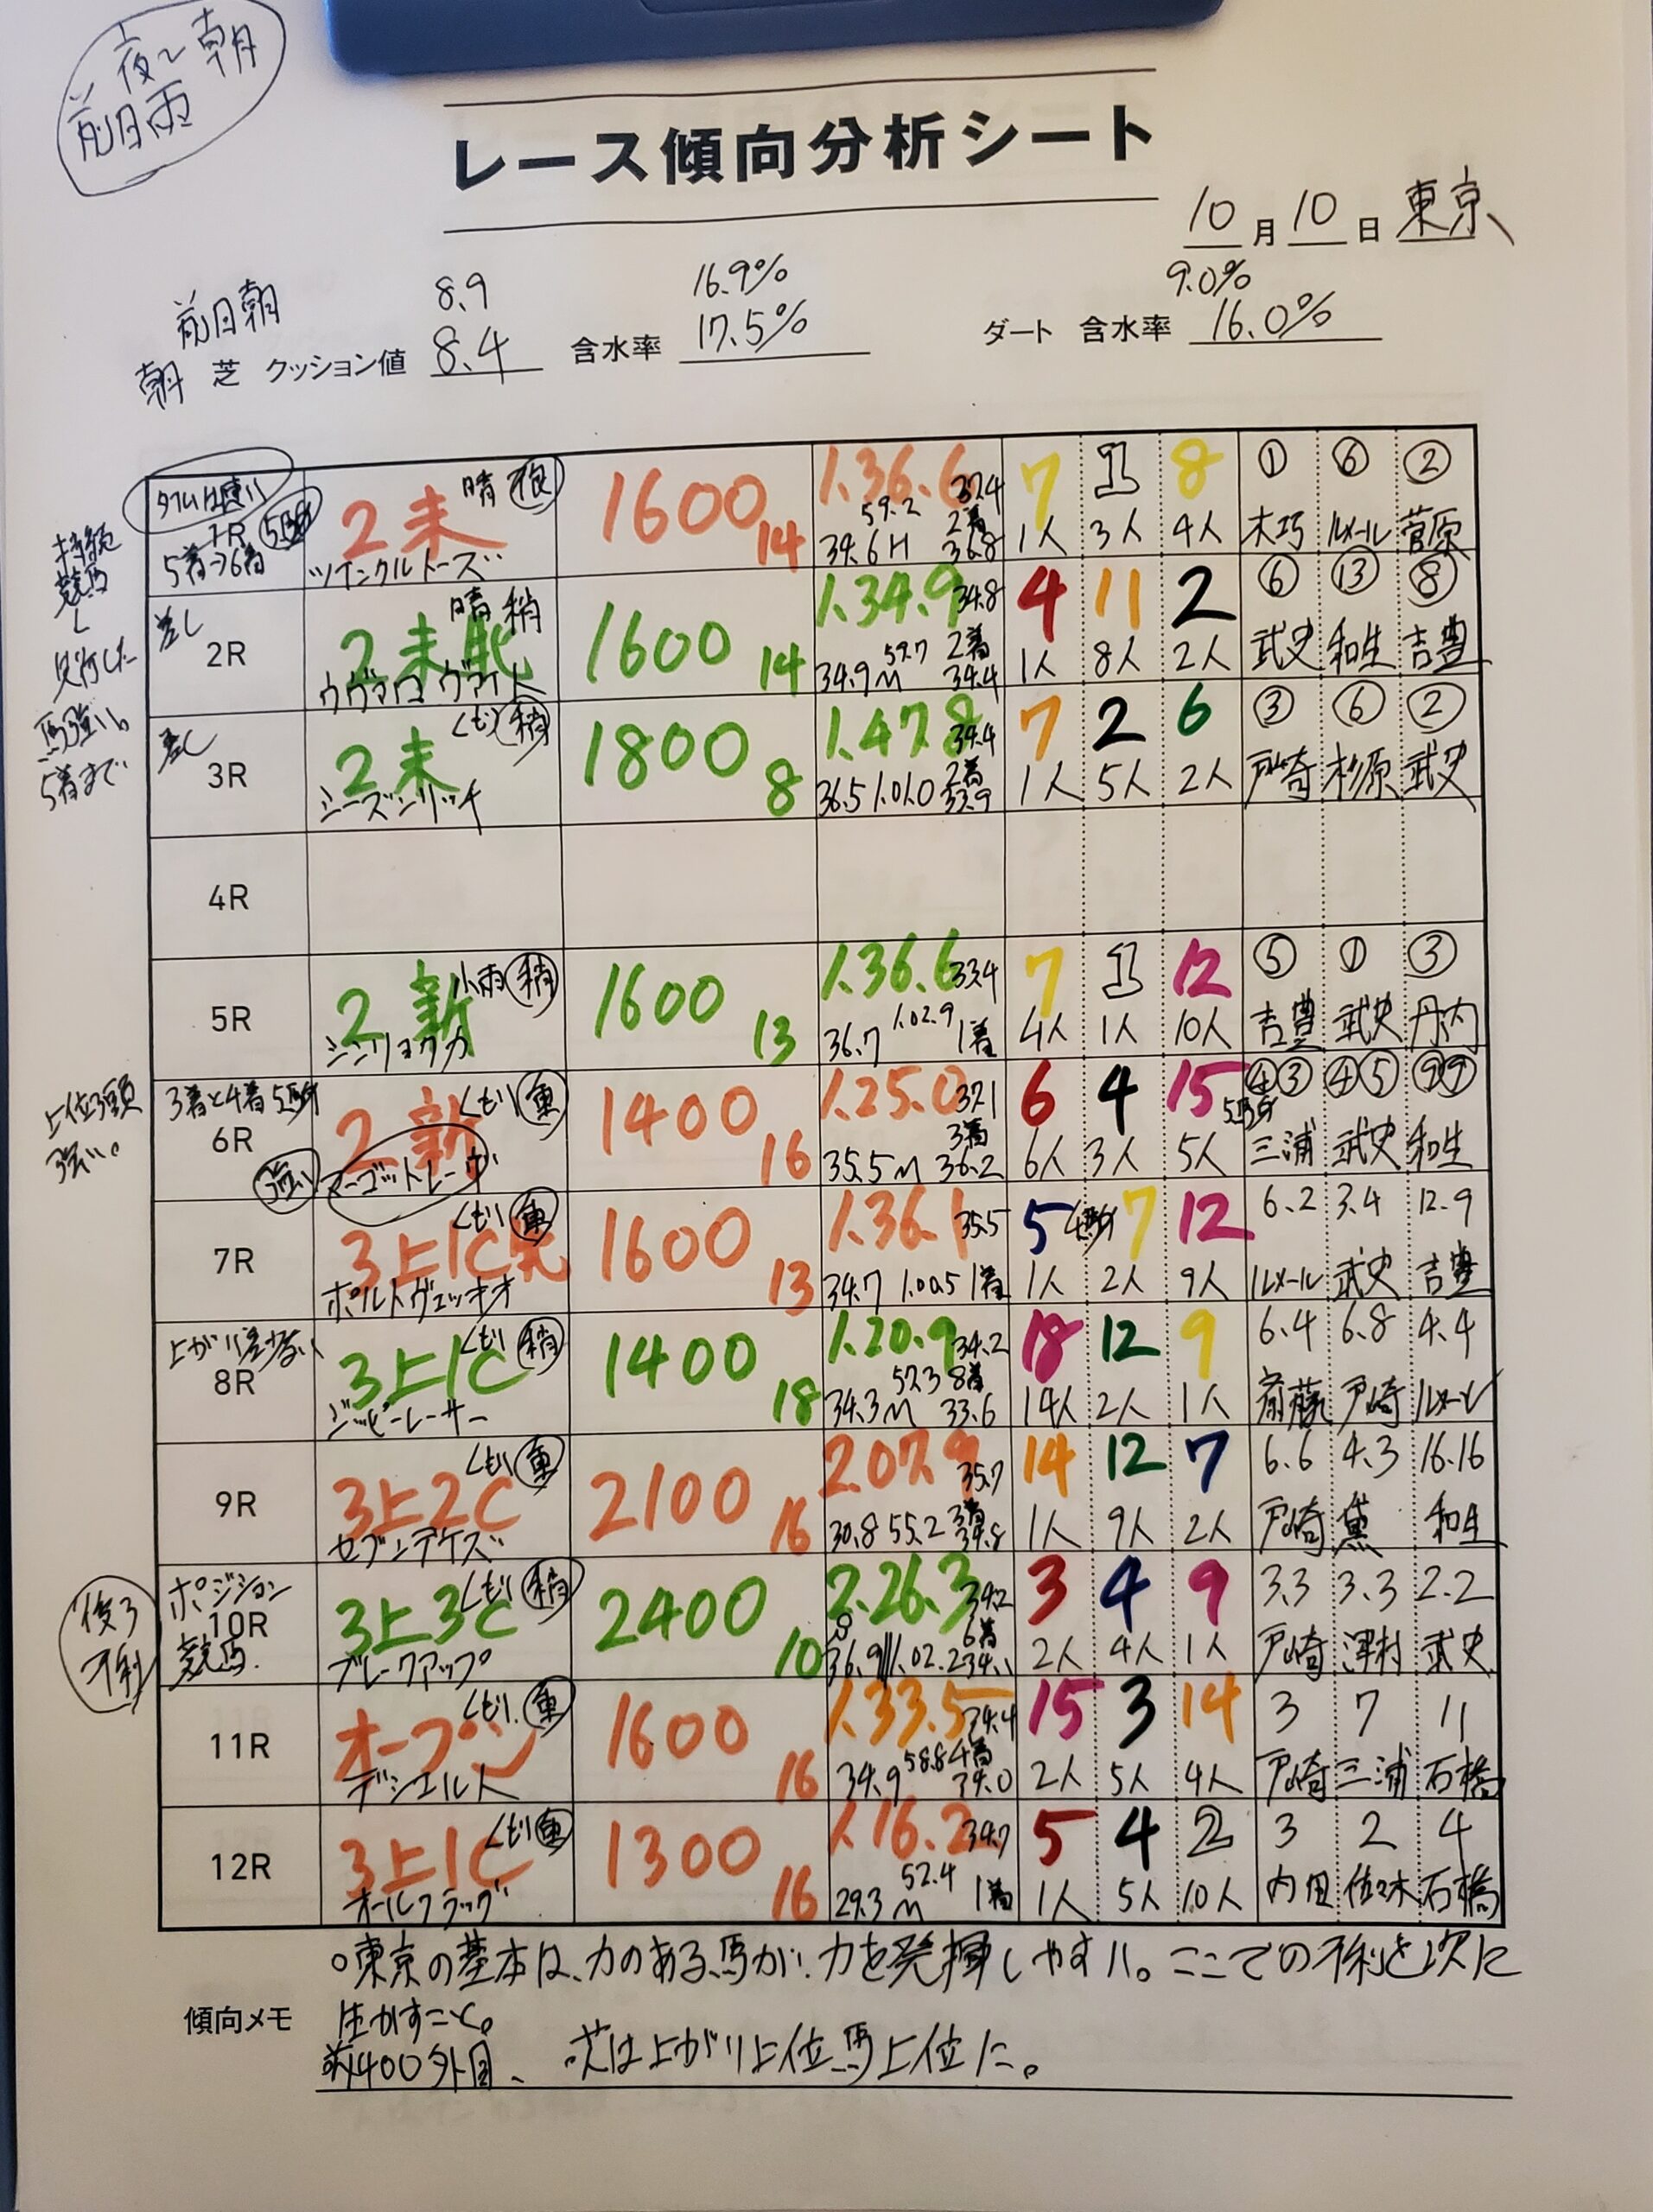 夜〜朝
前日雨
レース傾向分析シート
10月10日 東京
前日朝 8.9 16.9% 9.0%
朝 芝 クッション値 8.4 含水率 17.5% ダート 含水率 16.0%
タイムは速い
1R 5馬身
5着→6着
2未 晴 良
ツインクルトーズ
1600 14
1.36.6 37.4
59.2 2着
34.6 H 36.8
7 1 8
1人 3人 4人
① ⑥ ②
木巧 ルメール 菅原
持続
競馬
し
先行した
馬強い。
5着まで
差し
2R
2未牝 晴 稍
1600 14
1.34.9 34.8
59.7 2着
34.9 M 34.4
4 11 2
1人 8人 2人
⑥ ⑬ ⑧
武史 和生 吉豊
差し
3R
2未 くもり 稍
シーズンリッチ
1800 8
1.47.8 34.4
36.5 1.01.0 2着 33.9
7 2 6
1人 5人 2人
③ ⑥ ②
戸崎 杉原 武史
4R
5R
2新 小雨 稍
シンリョクカ
1600 13
1.36.6 33.4
36.7 1.02.9 1着
7 1 12
4人 1人 10人
⑤ ① ③
吉豊 武史 丹内
上位3頭
強い。
3着と4着 5馬身
6R
強い
2新 くもり 重
マーゴットレーヴ
1400 16
1.25.0 37.1
3着
35.5 M 36.2
6 4 15 5馬身
6人 3人 5人
④③ ④⑤ ⑨⑨
三浦 武史 和生
7R
3上1C くもり 重
ポルトヴェッキオ
1600 13
1.36.1 35.5
34.7 1.00.5 1着
5 4馬身 7 12
1人 2人 9人
6.2 3.4 12.9
ルメール 武史 吉豊
上がり差少ない
8R
3上1C くもり 稍
ジッピーレーサー
1400 18
1.20.9 34.2
57.3 8着
34.3 M 33.6
18 12 9
14人 2人 1人
6.4 6.8 4.4
斎藤 戸崎 ルメール
9R
3上2C くもり 重
セブンデイズ
2100 16
2.07.9 35.7
30.8 55.2 3着 34.8
14 12 7
1人 9人 2人
6.6 4.3 16.16
戸崎 黛 和生
後3
不利
ポジション
10R
競馬.
3上3C くもり 稍
ブレークアップ
2400 10
2.26.3 34.2
6着
36.9 1.02.2 34.1
3 4 9
2人 4人 1人
3.3 3.3 2.2
戸崎 津村 武史
11R
オープン くもり. 重
デシエルト
1600 16
1.33.5 34.4
58.8 4着
34.9 34.0
15 3 14
2人 5人 4人
3 7 11
戸崎 三浦 石橋
12R
3上1C くもり 重
オールフラッグ
1300 16
1.16.2 34.7
52.4
29.3 M 1着
5 4 2
1人 5人 10人
3 2 4
内田 佐々木 石橋
○東京の基本は、力のある馬が、力を発揮しやすい。ここでの不利を次に
傾向メモ 生かすこと。
芝1400外目、 芝は上がり上位馬上位に。